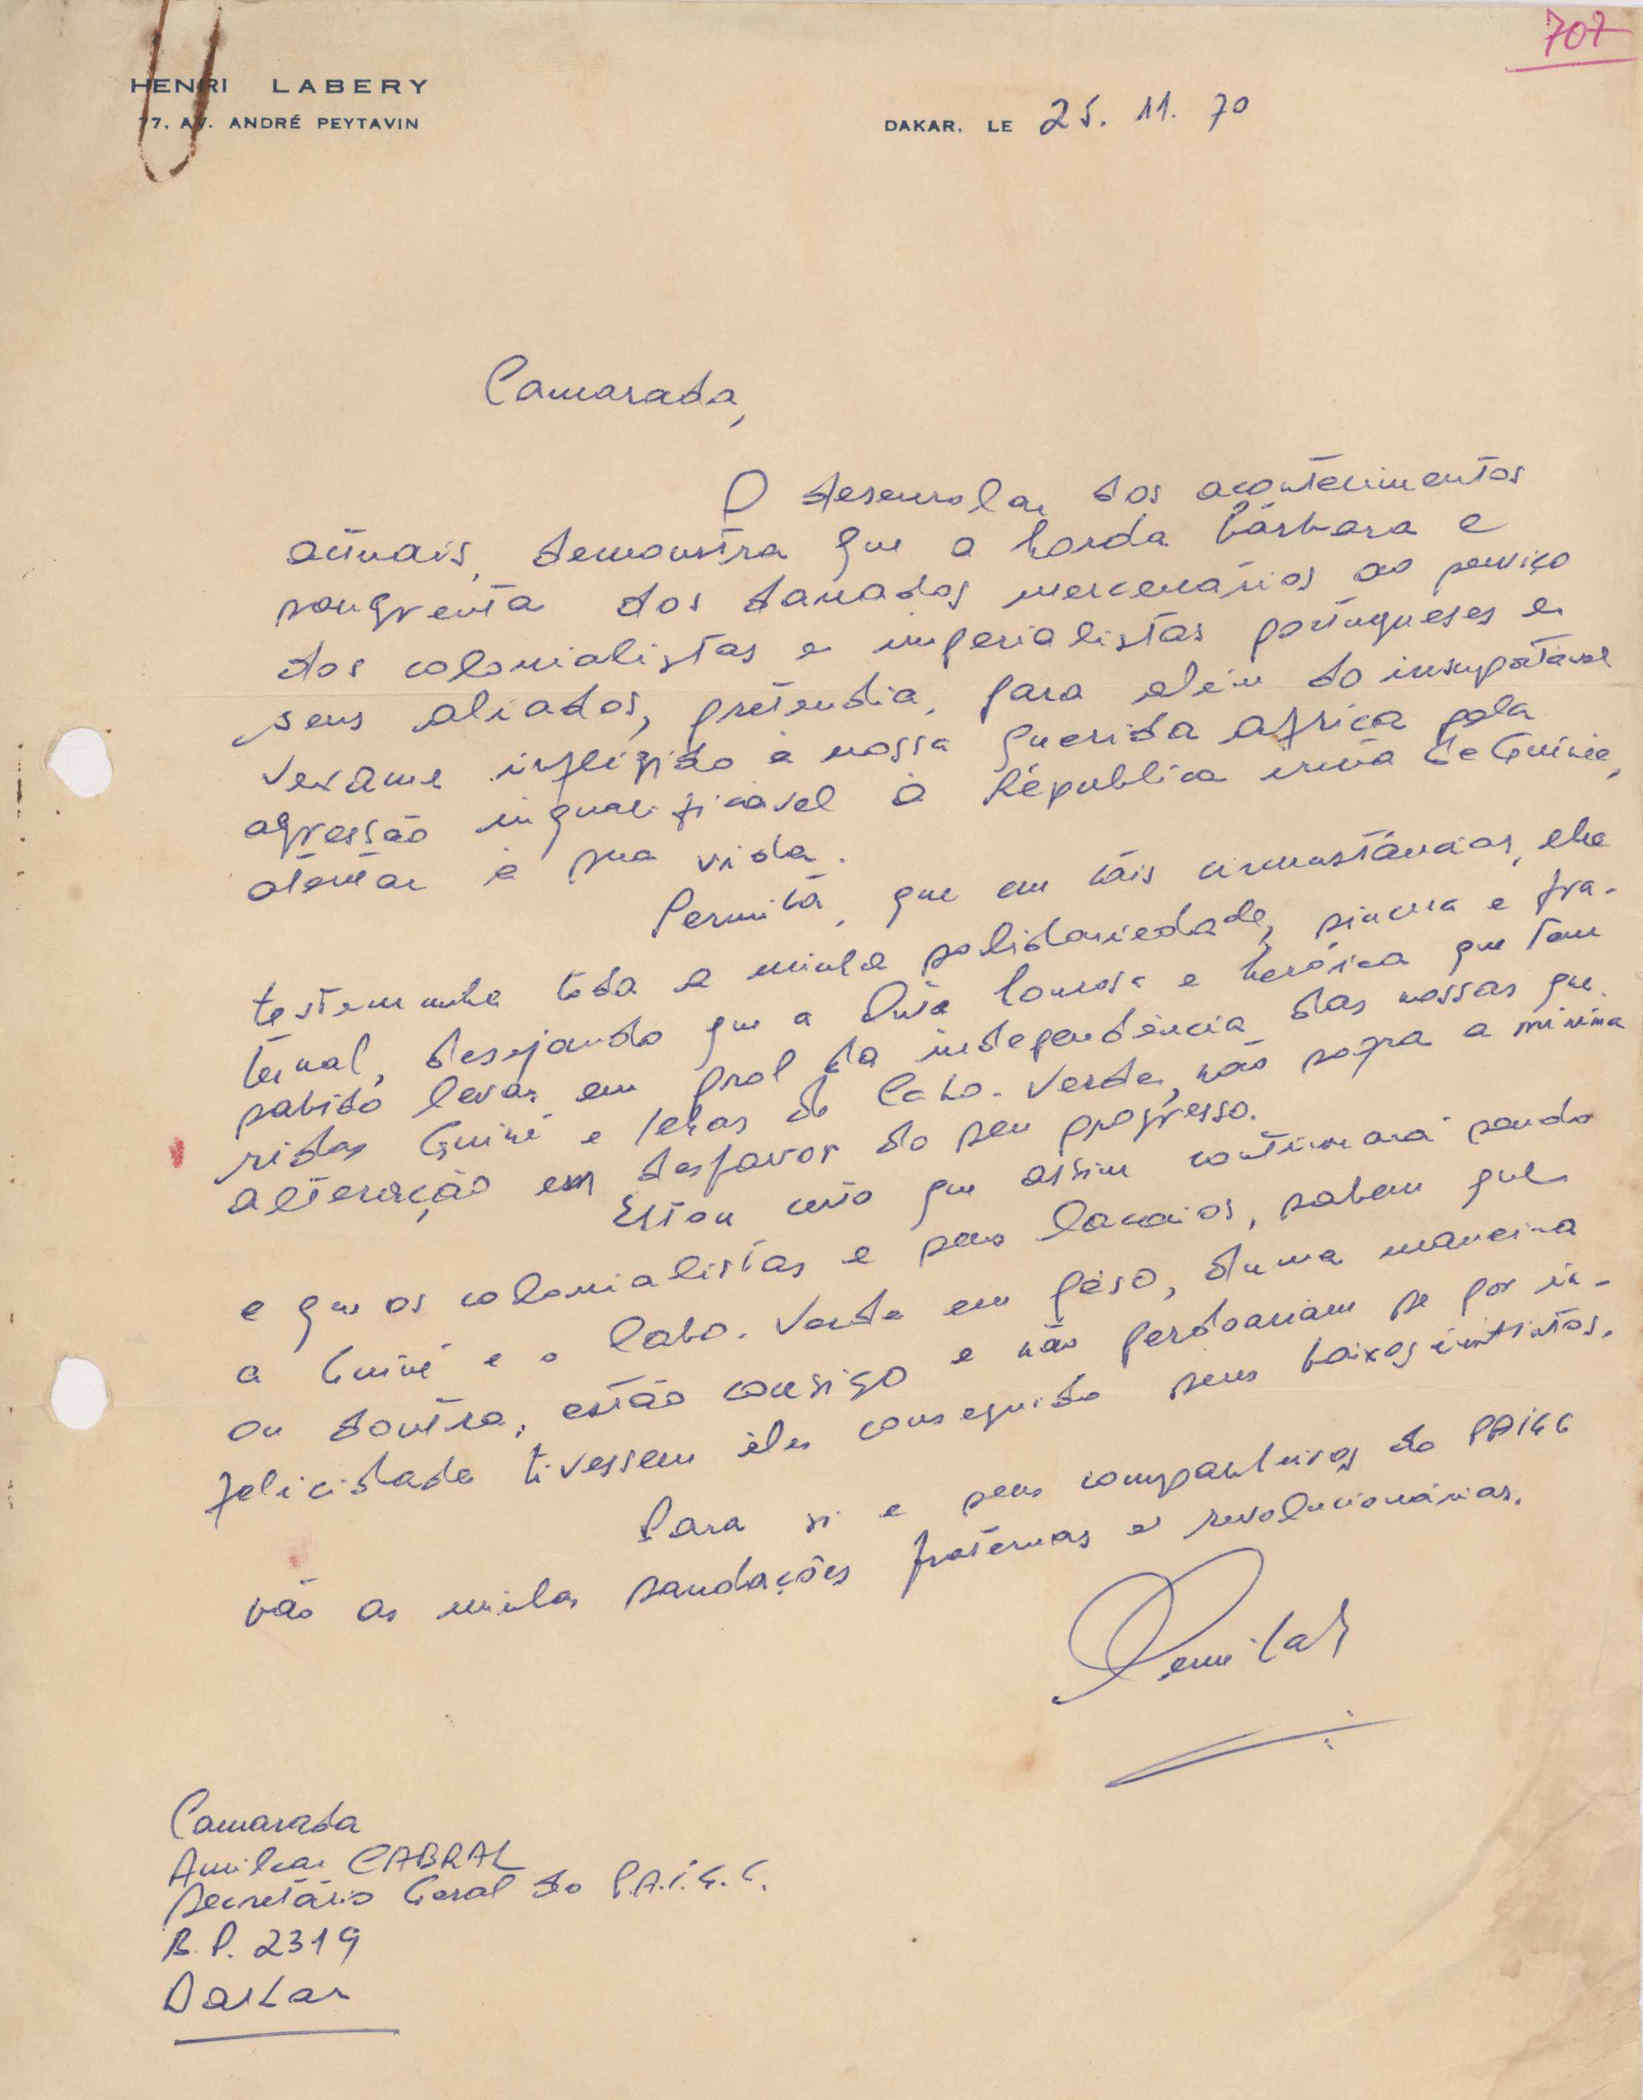 707
HENRI LABERY
77, AV. ANDRÉ PEYTAVIN
DAKAR, LE 25. 11. 70
Camarada,
O desenrolar dos acontecimentos
actuais, demonstra que a horda bárbara e
sangrenta dos danados mercenários ao serviço
dos colonialistas e imperialistas portugueses e
seus aliados, pretendia, para além do insuportável
vexame infligido à nossa querida Africa pela
agressão inqualificável à República irmã de Guinée,
atentar à sua vida.
Permita, que em tais circunstâncias, lhe
testemunhe toda a minha solidariedade, sincera e fra-
ternal, desejando que a luta honrosa e heróica que tem
sabido levar em prol da independência das nossas que-
ridas Guiné e Ilhas de Cabo-Verde, não sofra a mínima
alteração em desfavor do seu progresso.
Estou certo que assim continuará sendo
e que os colonialistas e seus lacaios, sabem que
a Guiné e o Cabo-Verde em pêso, duma maneira
ou doutra, estão consigo e não perdoariam se por in-
felicidade tivessem êles conseguido seus baixos instintos.
Para si e seus companheiros do PAIGC
vão as minhas saudações fraternas e revolucionárias.
Camarada
Amilcar CABRAL
Secretário Geral do P.A.I.G.C.
B.P. 2319
Dakar